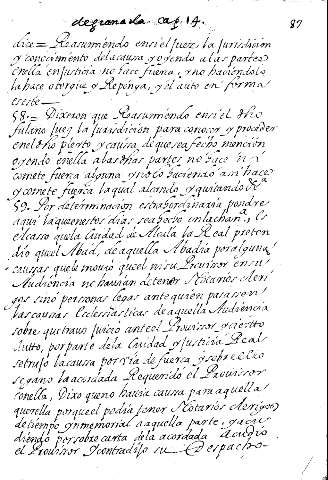 de granada Cap. 14. 87
dia = Reasumiendo ensi el Juez la Jurisdicion
y conocimiento de la causa y oyendo a las partes
en ella en Justicia no hace fuerza, y no haciendolo
la hace otorgue y Reponga, y el auto en forma
es este —
58. = Dixeron que Reasumiendo ensi el dho
fulano Juez la Jurisdicion para conocer y proceder
en el dho pleyto y causa, de que sea fecho mencion
oyendo en ella a las dhas partes no hace ni
comete fuerza alguna y no lo haciendo asi hace
y comete fuerza la qual alzando y quitando &a
59. Por determinacion extrahordinaria pondre
aqui la que en estos dias sea hecho en la chanca. Es
el caso que la Ciudad de Alcala la Real preten
dio que el Abad, de aquella Abadia por algunas
causas que le movio que el ni su Provisor en su
Audiencia no havian de tener Notarios cleri
gos sino personas legas ante quien pasasen
las causas Eclesiasticas de aquella Audiencia
sobre que truxo juicio ante el Provisor y visto
Auto, por parte de la Ciudad y Justicia Real
se truxo la causa por via de fuerza, y sobre ello
se gano la acordada Requerido el Provisor
con ella, Dixo que no hacia causa para aquella
querella porque el podia tener Notarios clerigos
de tiempo ynmemorial a aquella parte, y aca
diendo por sobre carta de la acordada Acudio
el Provisor y contradixo su Despacho